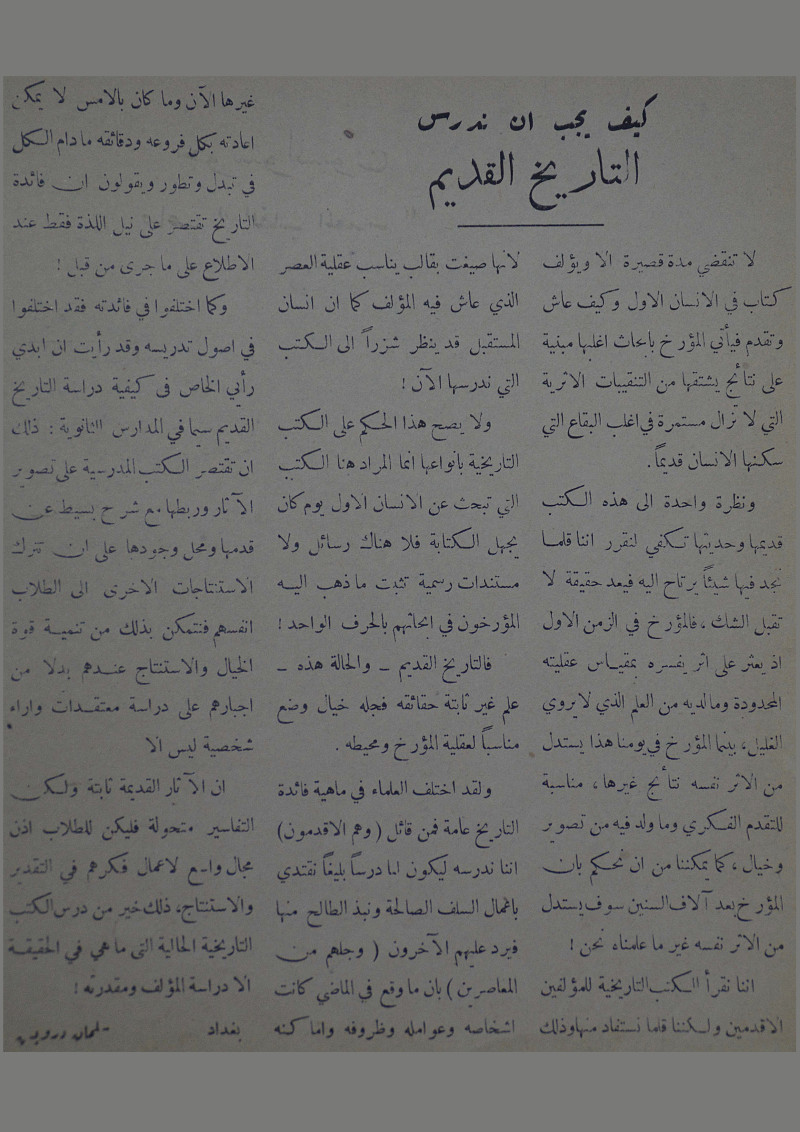 كيف يجب ان ندرس
التاريخ القديم
لا تنقضي مدة قصيرة الا ويؤلف
كتاب في الانسان الاول وكيف عاش
وتقدم فيأتي المؤرخ بابحاث اغلبها مبنية
على نتائج يشتقها من التنقيبات الاثرية
التي لا تزال مستمرة في اغلب البقاع التي
سكنها الانسان قديماً .
ونظرة واحدة الى هذه الكتب
قديمها وحديثها تكفي لنقرر اننا قلما
نجد فيها شيئاً يرتاح اليه فيعد حقيقة لا
تقبل الشك ، فالمؤرخ في الزمن الاول
اذ يعثر على اثر يفسره بمقياس عقليته
المحدودة وما لديه من العلم الذي لا يروي
الغليل ، بينما المؤرخ في يومنا هذا يستدل
من الاثر نفسه نتائج غيرها ، مناسبة
للتقدم الفكري وما ولد فيه من تصوير
وخيال ، كما يمكننا من ان نحكم بان
المؤرخ بعد آلاف السنين سوف يستدل
من الاثر نفسه غير ما علمناه نحن !
اننا نقرأ الكتب التاريخية للمؤلفين
الاقدمين ولكننا قلما نستفاد منها وذلك
لانها صيغت بقالب يناسب عقلية العصر
الذي عاش فيه المؤلف كما ان انسان
المستقبل قد ينظر شزراً الى الكتب
التي ندرسها الآن !
ولا يصح هذا الحكم على الكتب
التاريخية بانواعها انما المراد هنا الكتب
التي تبحث عن الانسان الاول يوم كان
يجهل الكتابة فلا هناك رسائل ولا
مستندات رسمية تثبت ما ذهب اليه
المؤرخون في ابحاثهم بالحرف الواحد !
فالتاريخ القديم - والحالة هذه -
علم غير ثابتة حقائقه فجله خيال وضع
مناسباً لعقلية المؤرخ ومحيطه .
ولقد اختلف العلماء في ماهية فائدة
التاريخ عامة فمن قائل ( وهم الاقدمون )
اننا ندرسه ليكون لنا درساً بليغاً نقتدي
باعمال السلف الصالحة ونبذ الطالح منها
فيرد عليهم الآخرون ( وجلهم من
المعاصرين ) بان ما وقع في الماضي كانت
اشخاصه وعوامله وظروفه واماكنه
غيرها الآن وما كان بالامس لا يمكن
اعادته بكل فروعه ودقائقه ما دام الكل
في تبدل وتطور ويقولون ان فائدة
التاريخ تقتصر على نيل اللذة فقط عند
الاطلاع على ما جرى من قبل !
وكما اختلفوا في فائدته فقد اختلفوا
في اصول تدريسه وقد رأيت ان ابدي
رأيي الخاص في كيفية دراسة التاريخ
القديم سيما في المدارس الثانوية : ذلك
ان تقتصر الكتب المدرسية على تصوير
الآثار وربطها مع شرح بسيط عن
قدمها ومحل وجودها على ان تترك
الاستنتاجات الاخرى الى الطلاب
انفسهم فنتمكن بذلك من تنمية قوة
الخيال والاستنتاج عندهم بدلا من
اجبارهم على دراسة معتقدات واراء
شخصية ليس الا
ان الآثار القديمة ثابتة ولكن
التفاسير متحولة فليكن للطلاب اذن
مجال واسع لاعمال فكرهم في التقدير
والاستنتاج ، ذلك خير من درس الكتب
التاريخية الحالية التي ما هي في الحقيقة
الا دراسة المؤلف ومقدرته !
بغداد